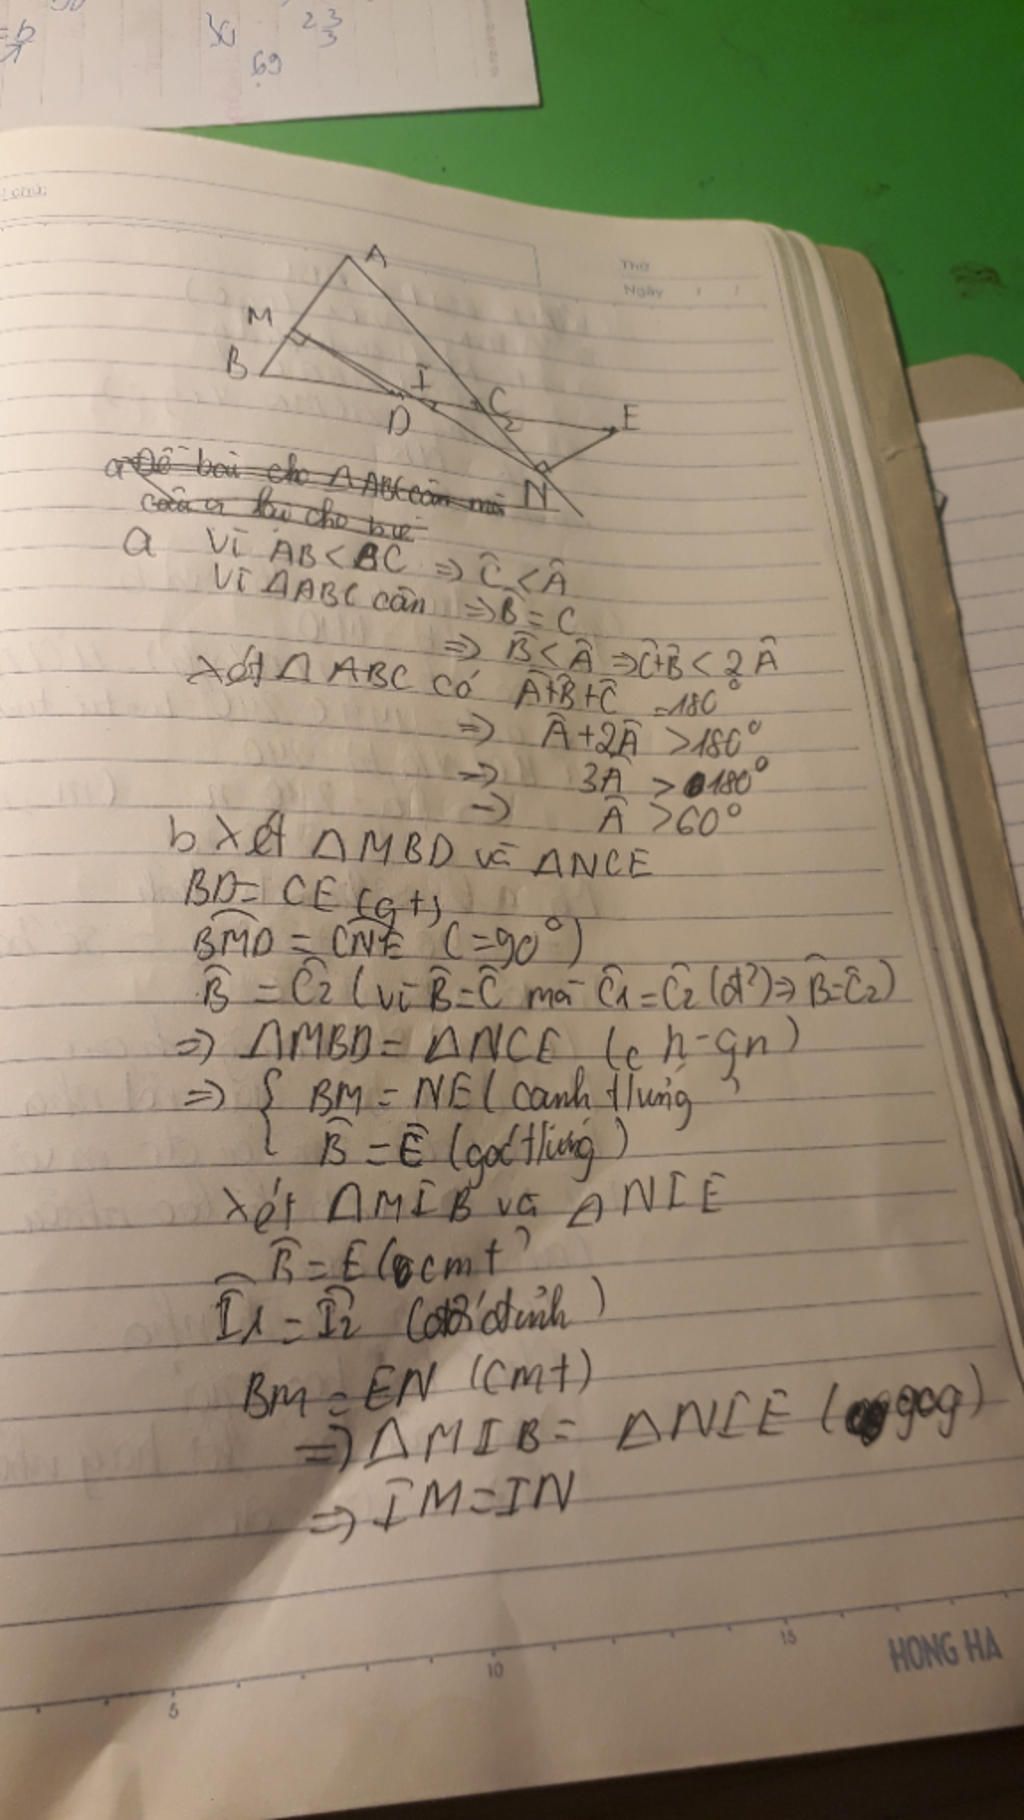 30 23
3
69
Thứ
Ngày / /
A
M
B
I
C
2
E
D
N
a Đề bài cho ΔABC cân mà
câu a lại cho
a Vì AB < BC ⇒ Ĉ < Â
Vì ΔABC cân ⇒ B̂ = C
⇒ B̂ < Â ⇒ Ĉ + B̂ < 2Â
Xét Δ ABC có Â + B̂ + Ĉ = 180°
⇒ Â + 2Â > 180°
⇒ 3Â > 180°
⇒ Â > 60°
b Xét ΔMBD và ΔNCE
BD = CE (gt)
BMD = CNE (=90°)
B̂ = Ĉ2 (vì B̂ = Ĉ mà Ĉ1 = Ĉ2 (đ²) ⇒ B̂ = Ĉ2)
⇒ ΔMBD = ΔNCE (ch-gn)
⇒ { BM = NE (cạnh t/ứng)
B̂ = Ê (góc t/ứng)
Xét ΔMIB và ΔNIE
B̂ = E (cmt)
Î1 = Î2 (đối đỉnh)
BM = EN (cmt)
⇒ ΔMIB = ΔNIE (gcg)
⇒ IM = IN
5 10 15
HONG HA